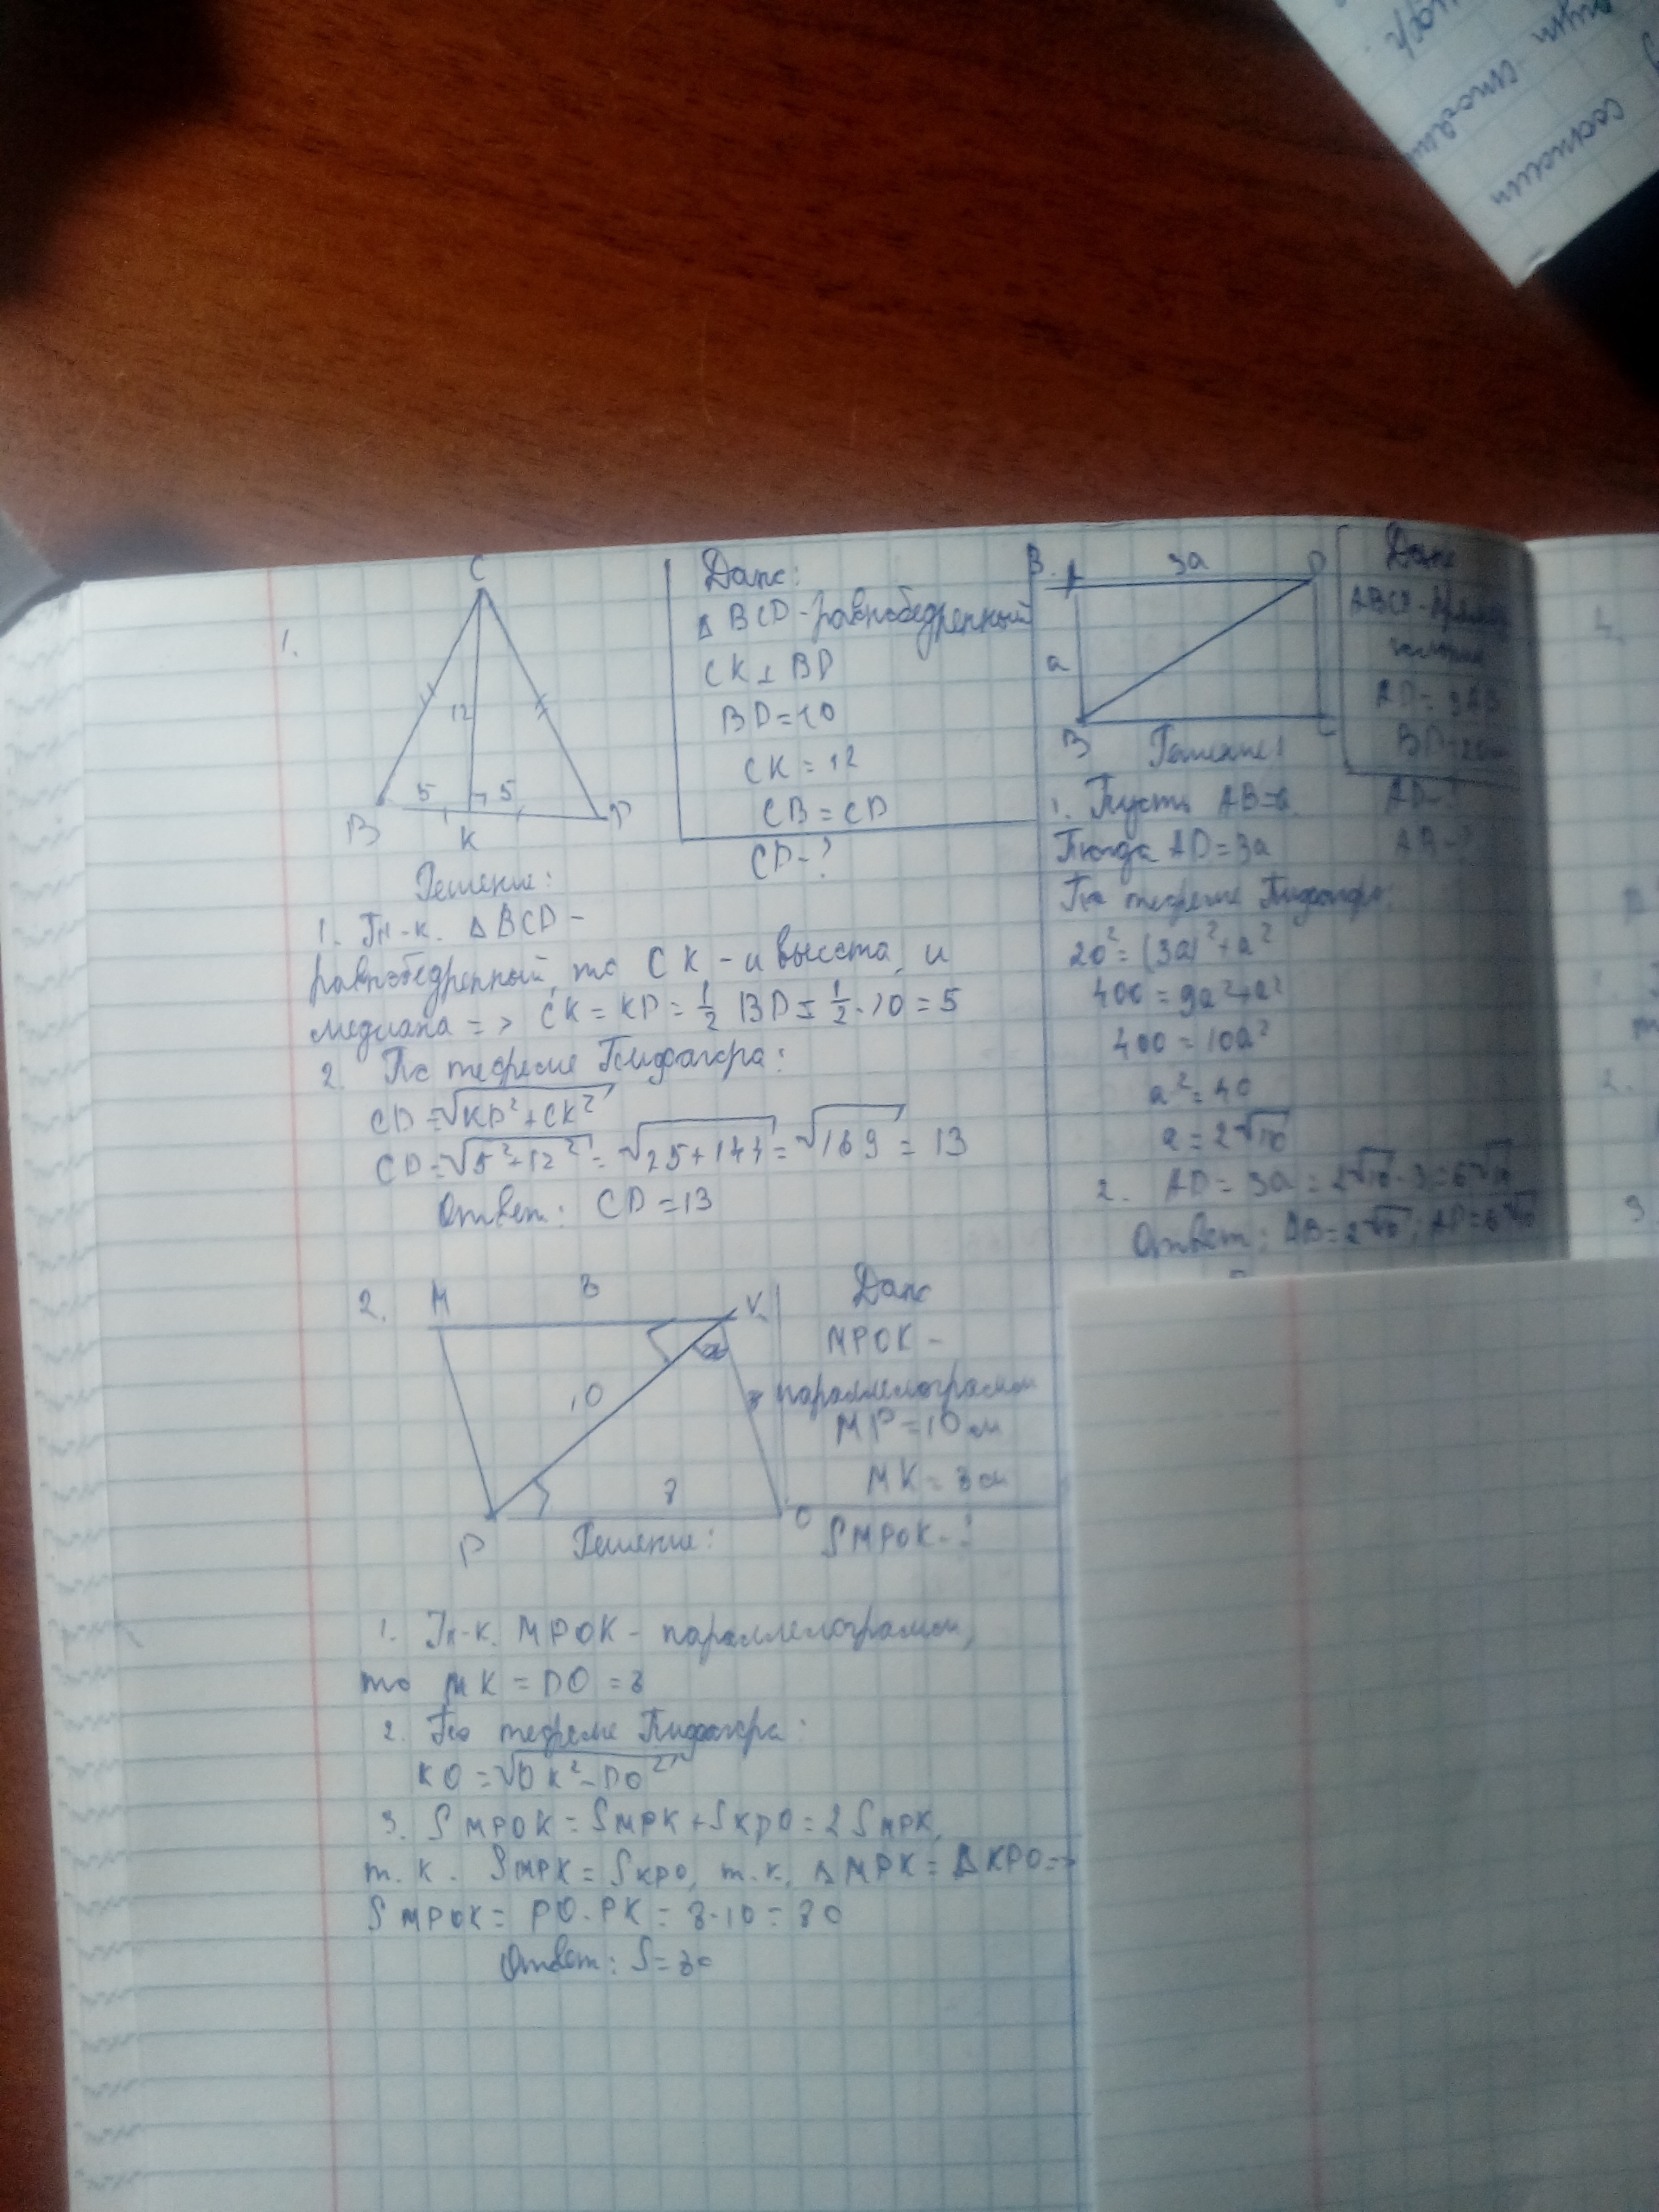 1.
C
12
5
5
B
K
D
Дано:
Δ BCD - равнобедренный
CK ⊥ BD
BD = 10
CK = 12
CB = CD
CD - ?
Решение:
1. Т-к. Δ BCD -
равнобедренный, то CK - и высота, и
медиана => CK = KD = 1/2 BD = 1/2 · 10 = 5
2. По теореме Пифагора:
CD = √KD² + CK²
CD = √5² + 12² = √25 + 144 = √169 = 13
Ответ: CD = 13
2.
M
8
K
10
8
P
O
Дано
MPOK -
параллелограмм
MP = 10 см
MK = 8 см
SMPOK - ?
Решение:
1. Т-к. MPOK - параллелограмм,
то MK = PO = 8
2. По теореме Пифагора:
KO = √PK² - PO²
3. SMPOK = SMPK + SKPO = 2 SMPK,
т. к. SMPK = SKPO, т. к. Δ MPK = Δ KPO =>
SMPOK = PO · PK = 8 · 10 = 80
Ответ: S = 80
3.
3a
a
B
Дано
AD = 3AB
AD - ?
AB - ?
Решение:
1. Пусть AB = a.
Тогда AD = 3a
По теореме Пифагора:
20² = (3a)² + a²
400 = 9a² + a²
400 = 10a²
a² = 40
a = 2√10
2. AD = 3a = 2√10 · 3 = 6√10
Ответ: AB = 2√10; AD = 6√10